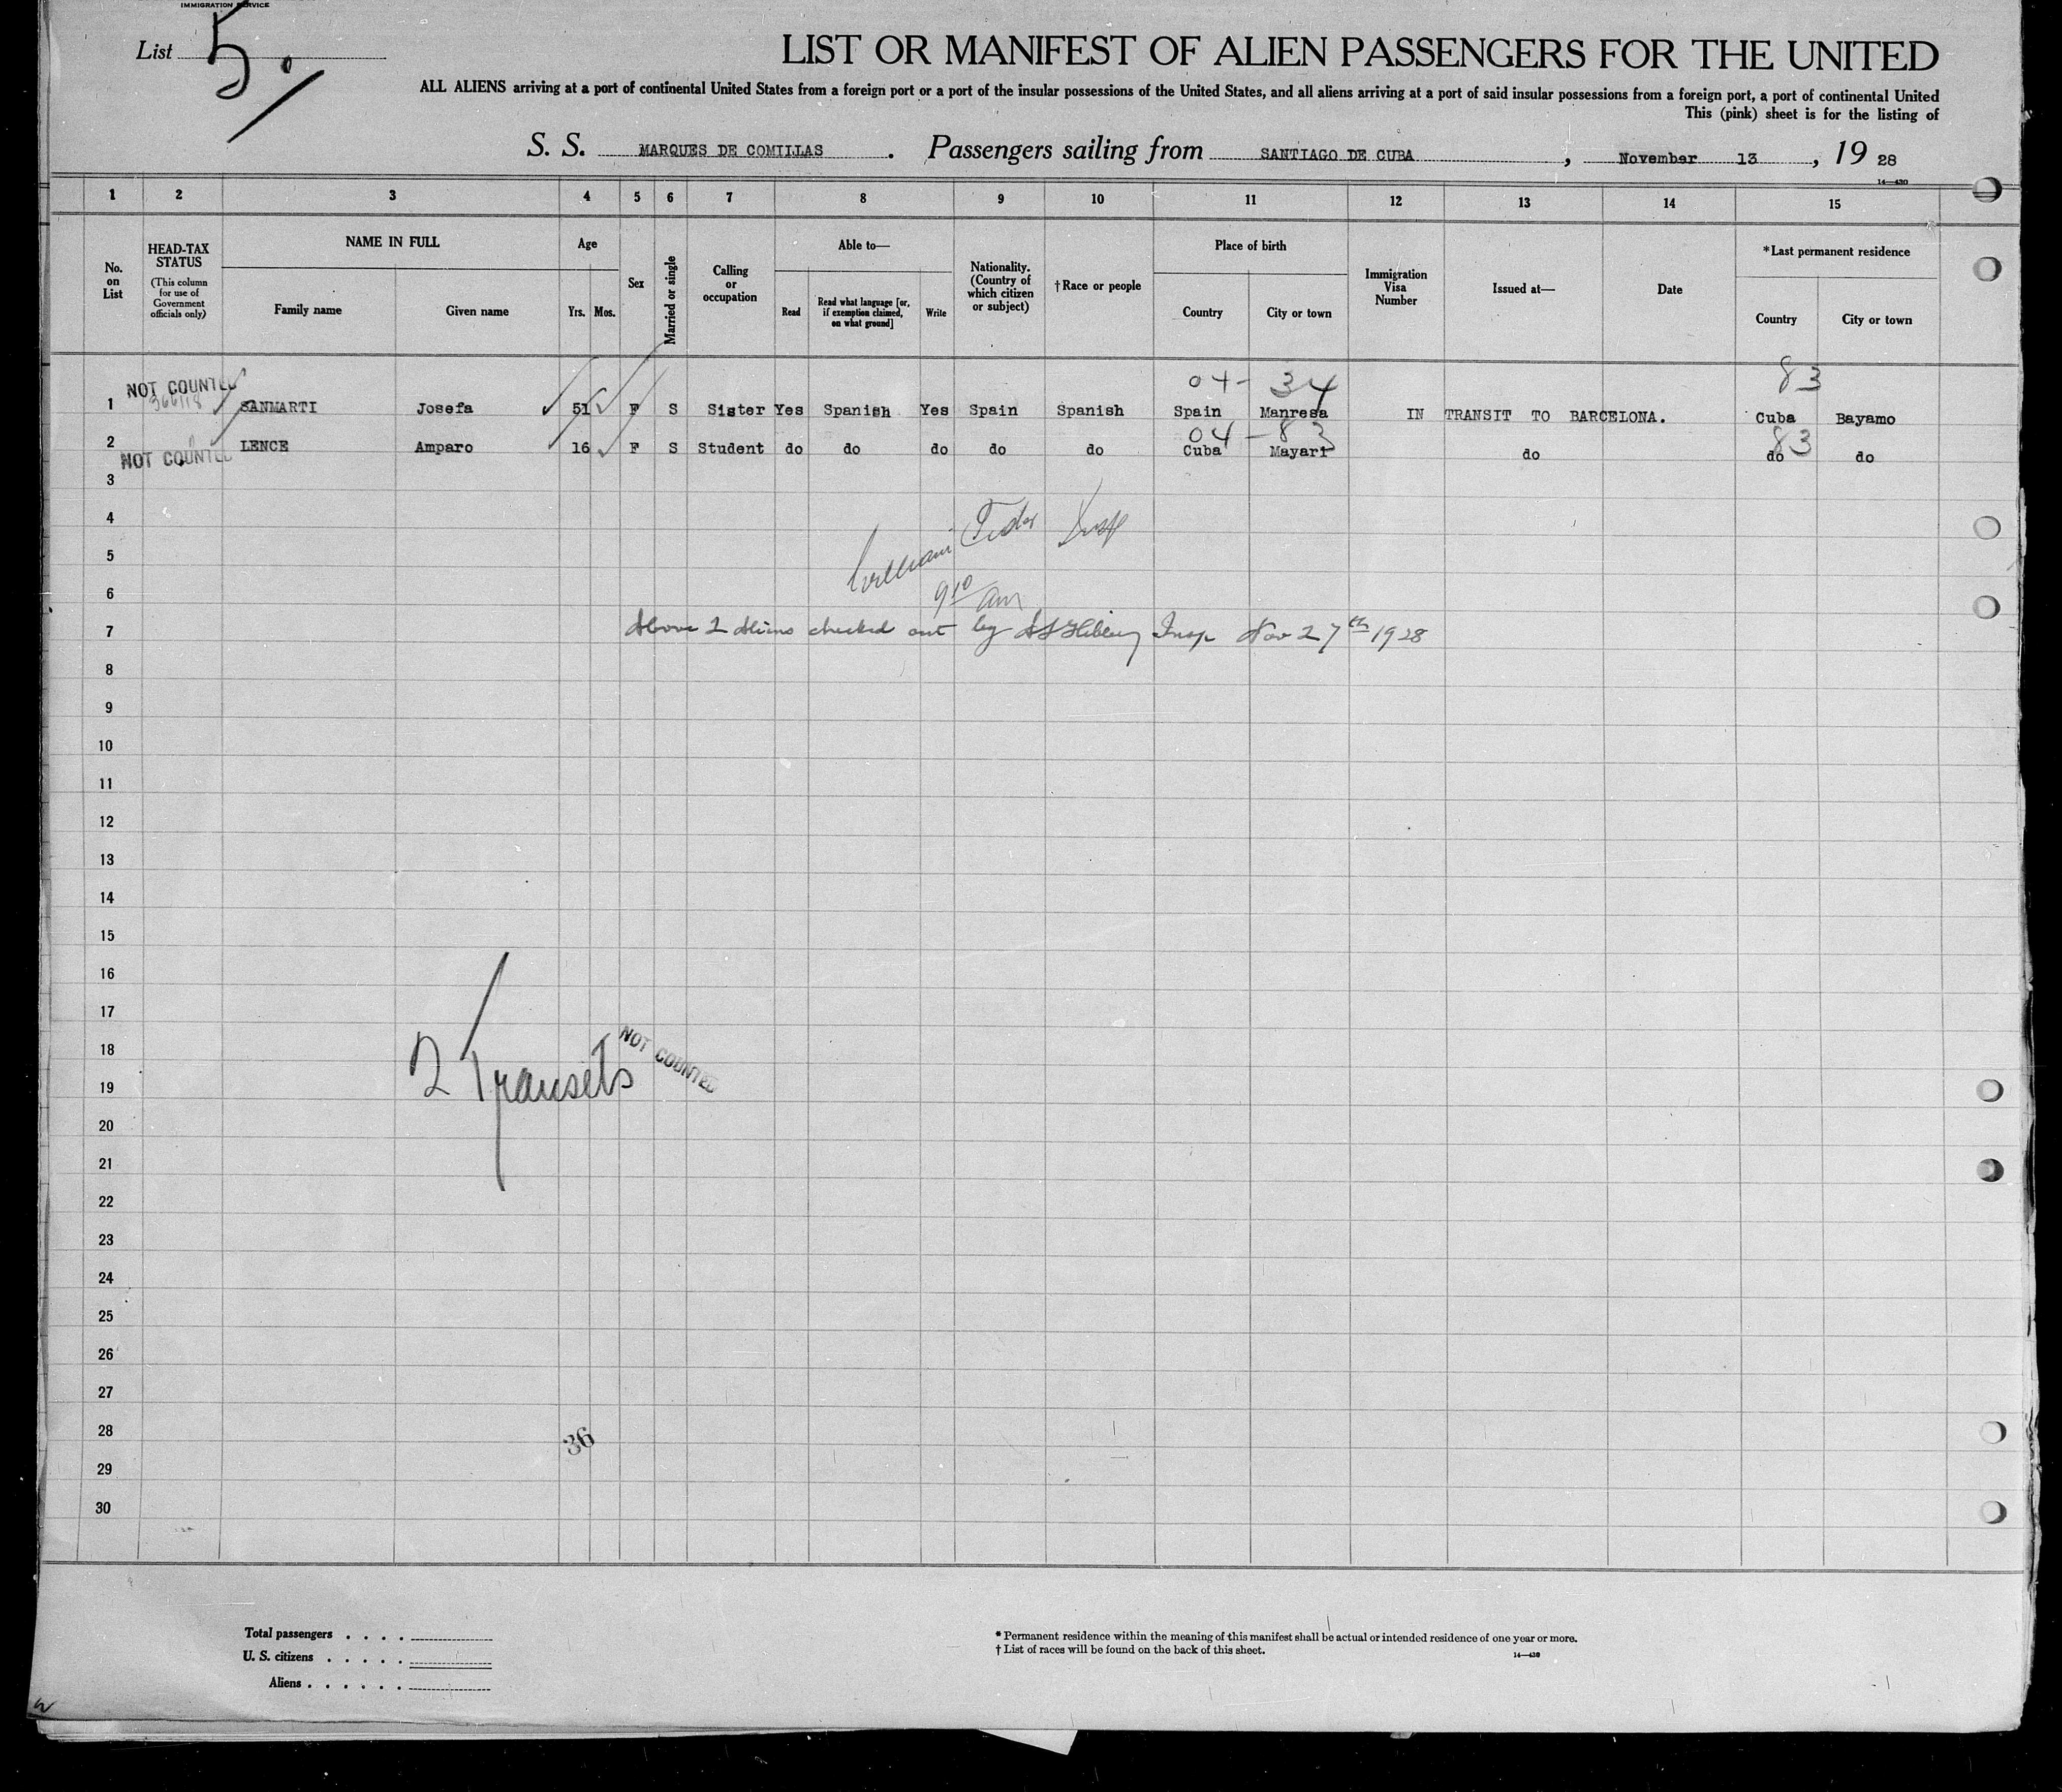 IMMIGRATION SERVICE
List 5.
LIST OR MANIFEST OF ALIEN PASSENGERS FOR THE UNITED
ALL ALIENS arriving at a port of continental United States from a foreign port or a port of the insular possessions of the United States, and all aliens arriving at a port of said insular possessions from a foreign port, a port of continental United
This (pink) sheet is for the listing of
S. S. MARQUES DE COMILLAS . Passengers sailing from SANTIAGO DE CUBA , November 13 , 19 28
14—430
1 2 3 4 5 6 7 8 9 10 11 12 13 14 15
No. on List
HEAD-TAX STATUS (This column for use of Government officials only)
NAME IN FULL
Family name Given name
Age
Yrs. Mos.
Sex
Married or single
Calling or occupation
Able to—
Read
Read what language [or, if exemption claimed, on what ground]
Write
Nationality. (Country of which citizen or subject)
†Race or people
Place of birth
Country City or town
Immigration Visa Number
Issued at—
Date
*Last permanent residence
Country City or town
04- 34 83
NOT COUNTED
1 SANMARTI Josefa 51 F S Sister Yes Spanish Yes Spain Spanish Spain Manresa IN TRANSIT TO BARCELONA. Cuba Bayamo
04 - 83 83
2 LENCE Amparo 16 F S Student do do do do do Cuba Mayari do do do
NOT COUNTED
3
4
William Insp
5
6
9 10 am
7 Above 2 Aliens checked out by Insp Nov 27th 1928
8
9
10
11
12
13
14
15
16
17
18
NOT COUNTED
19 2 Transits
20
21
22
23
24
25
26
27
28 36
29
30
Total passengers . . . .
U. S. citizens . . . . .
Aliens . . . . . .
* Permanent residence within the meaning of this manifest shall be actual or intended residence of one year or more.
† List of races will be found on the back of this sheet.
14—430